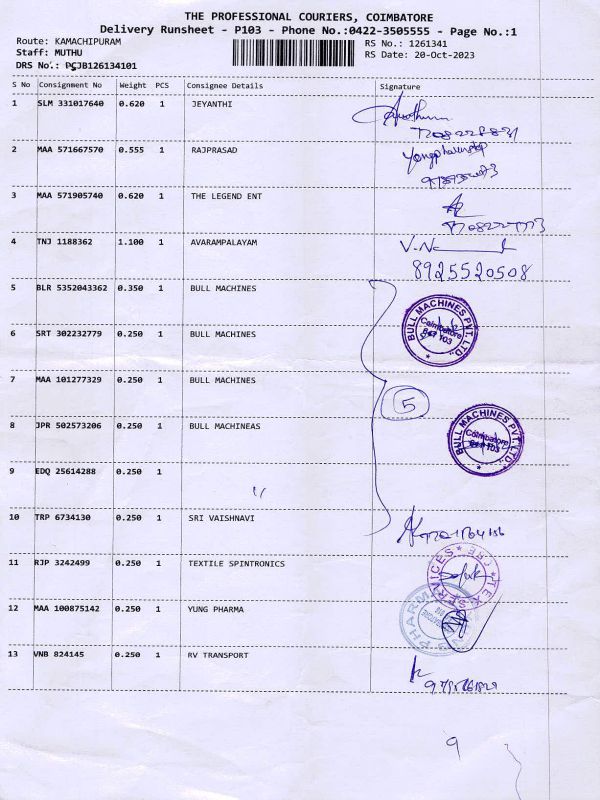 THE PROFESSIONAL COURIERS, COIMBATORE
Delivery Runsheet - P103 - Phone No.:0422-3505555 - Page No.:1
Route: KAMACHIPURAM
RS No.: 1261341
Staff: MUTHU
RS Date: 20-Oct-2023
DRS No.: PCJB126134101
S No Consignment No Weight PCS Consignee Details Signature
1 SLM 331017640 0.620 1 JEYANTHI
2 MAA 571667570 0.555 1 RAJPRASAD
3 MAA 571905740 0.620 1 THE LEGEND ENT
4 TNJ 1188362 1.100 1 AVARAMPALAYAM
8925520508
5 BLR 5352043362 0.350 1 BULL MACHINES
BULL MACHINES PVT. LTD.
Coimbatore
6 SRT 302232779 0.250 1 BULL MACHINES
7 MAA 101277329 0.250 1 BULL MACHINES
5
8 JPR 502573206 0.250 1 BULL MACHINEAS
BULL MACHINES PVT. LTD.
Coimbatore
9 EDQ 25614288 0.250 1 "
10 TRP 6734130 0.250 1 SRI VAISHNAVI
11 RJP 3242499 0.250 1 TEXTILE SPINTRONICS
SERVICES
12 MAA 100875142 0.250 1 YUNG PHARMA
PHARMA
13 VNB 824145 0.250 1 RV TRANSPORT
9